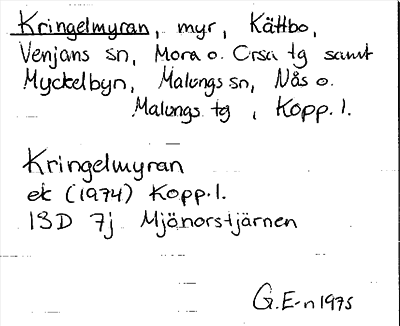 Kringelmyran, myr, Kättbo,
Venjans sn, Mora o. Orsa tg samt
Myckelbyn, Malungs sn, Nås o.
Malungs tg, Kopp. l.
Kringelmyran
ek (1974) Kopp. l.
13D 7j Mjänorstjärnen
G.E-n 1975